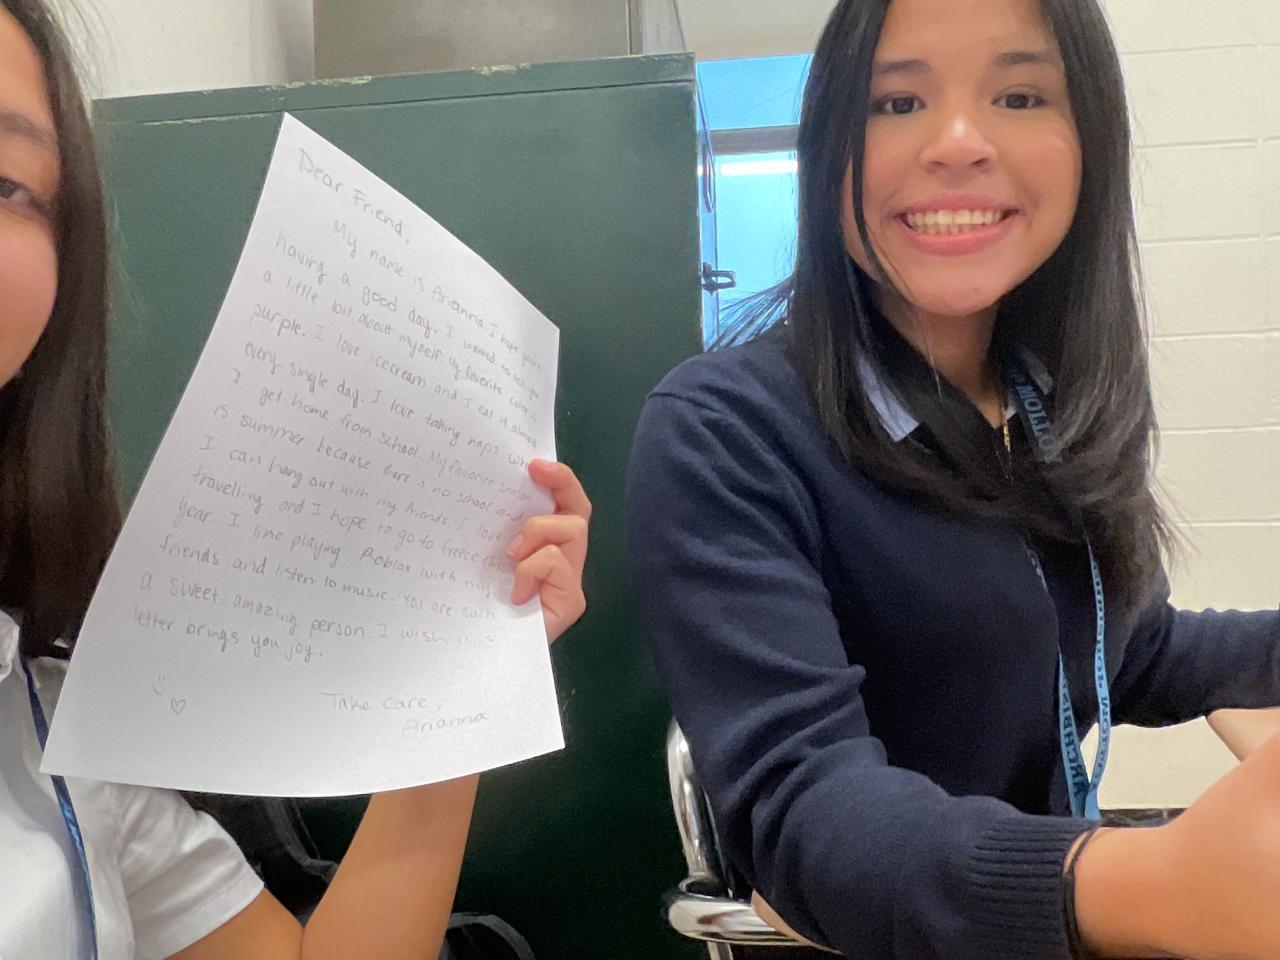 Dear Friend,
My name is Arianna. I hope you're
having a good day. I wanted to tell you
a little bit about myself. My favorite color is
purple. I love icecream and I eat it almost
every single day. I love taking naps when
I get home from school. My favorite season
is summer because there is no school and
I can hang out with my friends. I love
travelling and I hope to go to Greece this
year. I like playing Roblox with my
friends and listen to music. You are such
a sweet, amazing person. I wish this
letter brings you joy.
Take care,
Arianna
MOLLOY
ARCHBISHOP MOLLOY